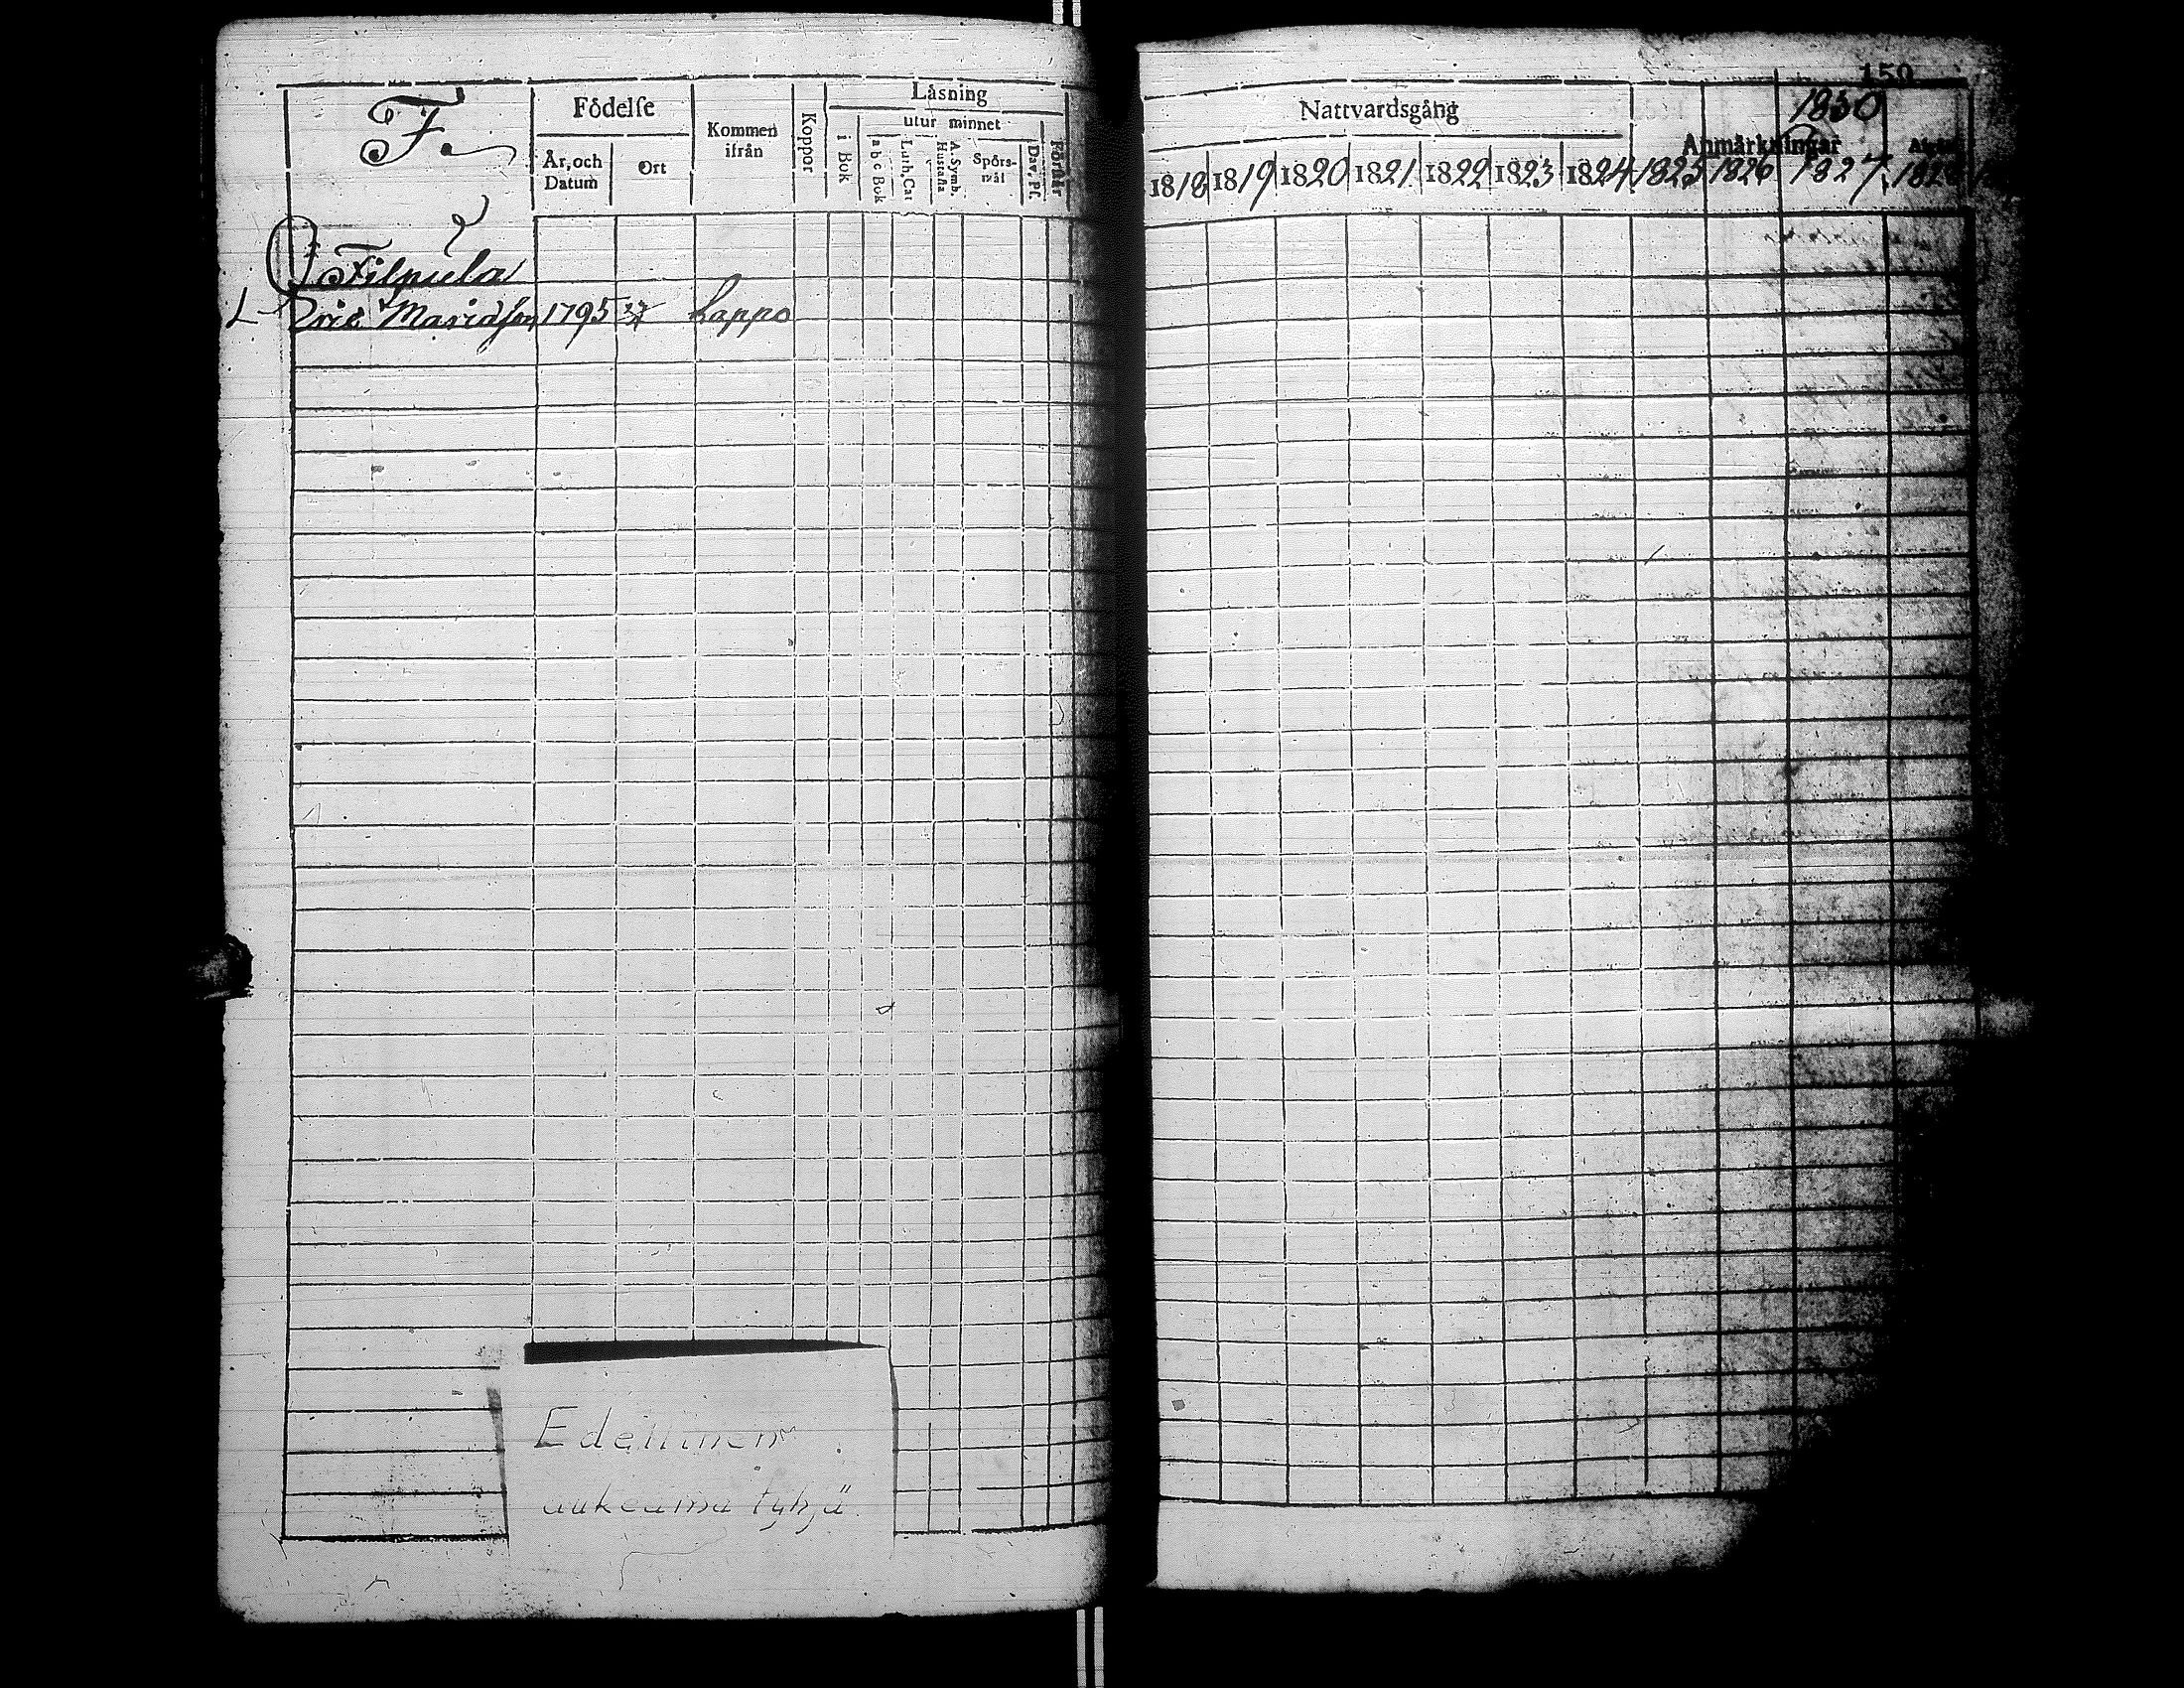 150
F.
Födelse
År, och Datum
Ort
Kommen ifrån
Koppor
Läsning
i Bok
utur minnet
a b c Bok
Luth, Cat
A. Symb. Hustafla
Spörs-mål
Dav. Pf.
Förhör
Nattvardsgång
1818 1819 1820 1821 1822 1823 1824 1825 1826 1827
Anmärkningar
1830
Filpula
L Eric 1795 Lappo
Edellinen
aukeama tyhjä